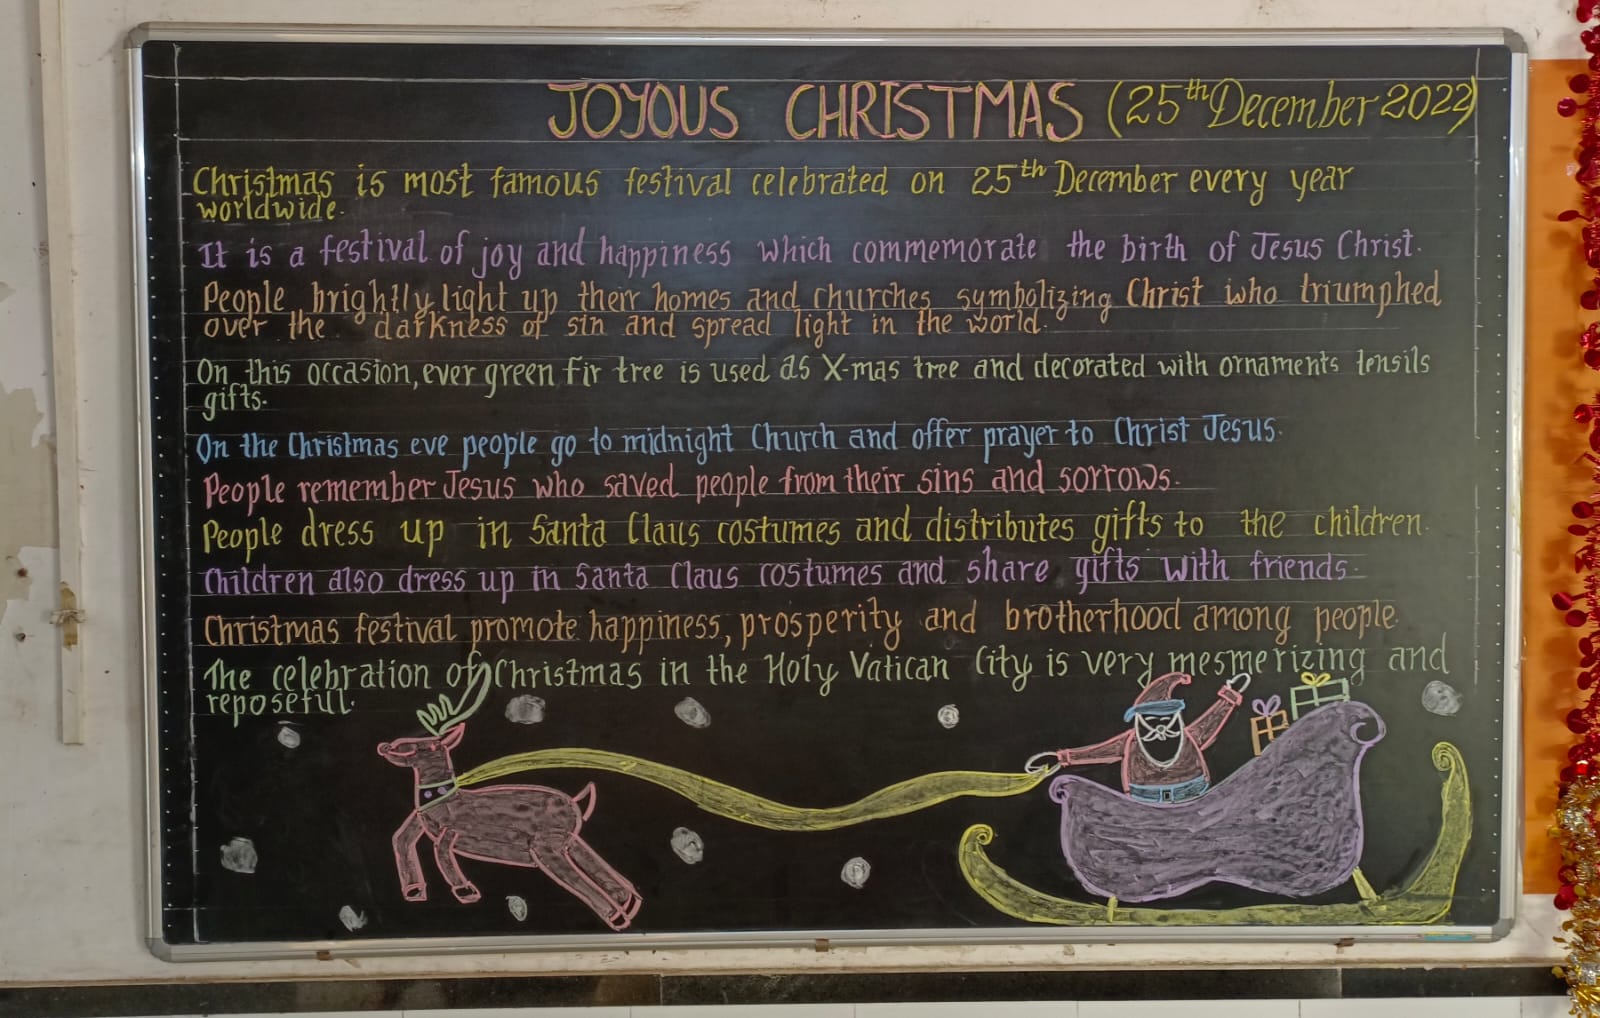 JOYOUS CHRISTMAS (25th December 2022)
Christmas is most famous festival celebrated on 25th December every year
worldwide.
It is a festival of joy and happiness which commemorate the birth of Jesus Christ.
People brightly light up their homes and churches symbolizing Christ who triumphed
over the darkness of sin and spread light in the world.
On this occasion, ever green fir tree is used as X-mas tree and decorated with ornaments tensils
gifts.
On the Christmas eve people go to midnight Church and offer prayer to Christ Jesus.
People remember Jesus who saved people from their sins and sorrows.
People dress up in Santa Claus costumes and distributes gifts to the children.
Children also dress up in Santa Claus costumes and share gifts with friends.
Christmas festival promote happiness, prosperity and brotherhood among people.
The celebration of Christmas in the Holy Vatican City is very mesmerizing and
reposeful.